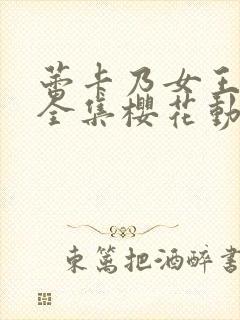 蕾卡乃女王
全集櫻花動
東篱把酒醉書